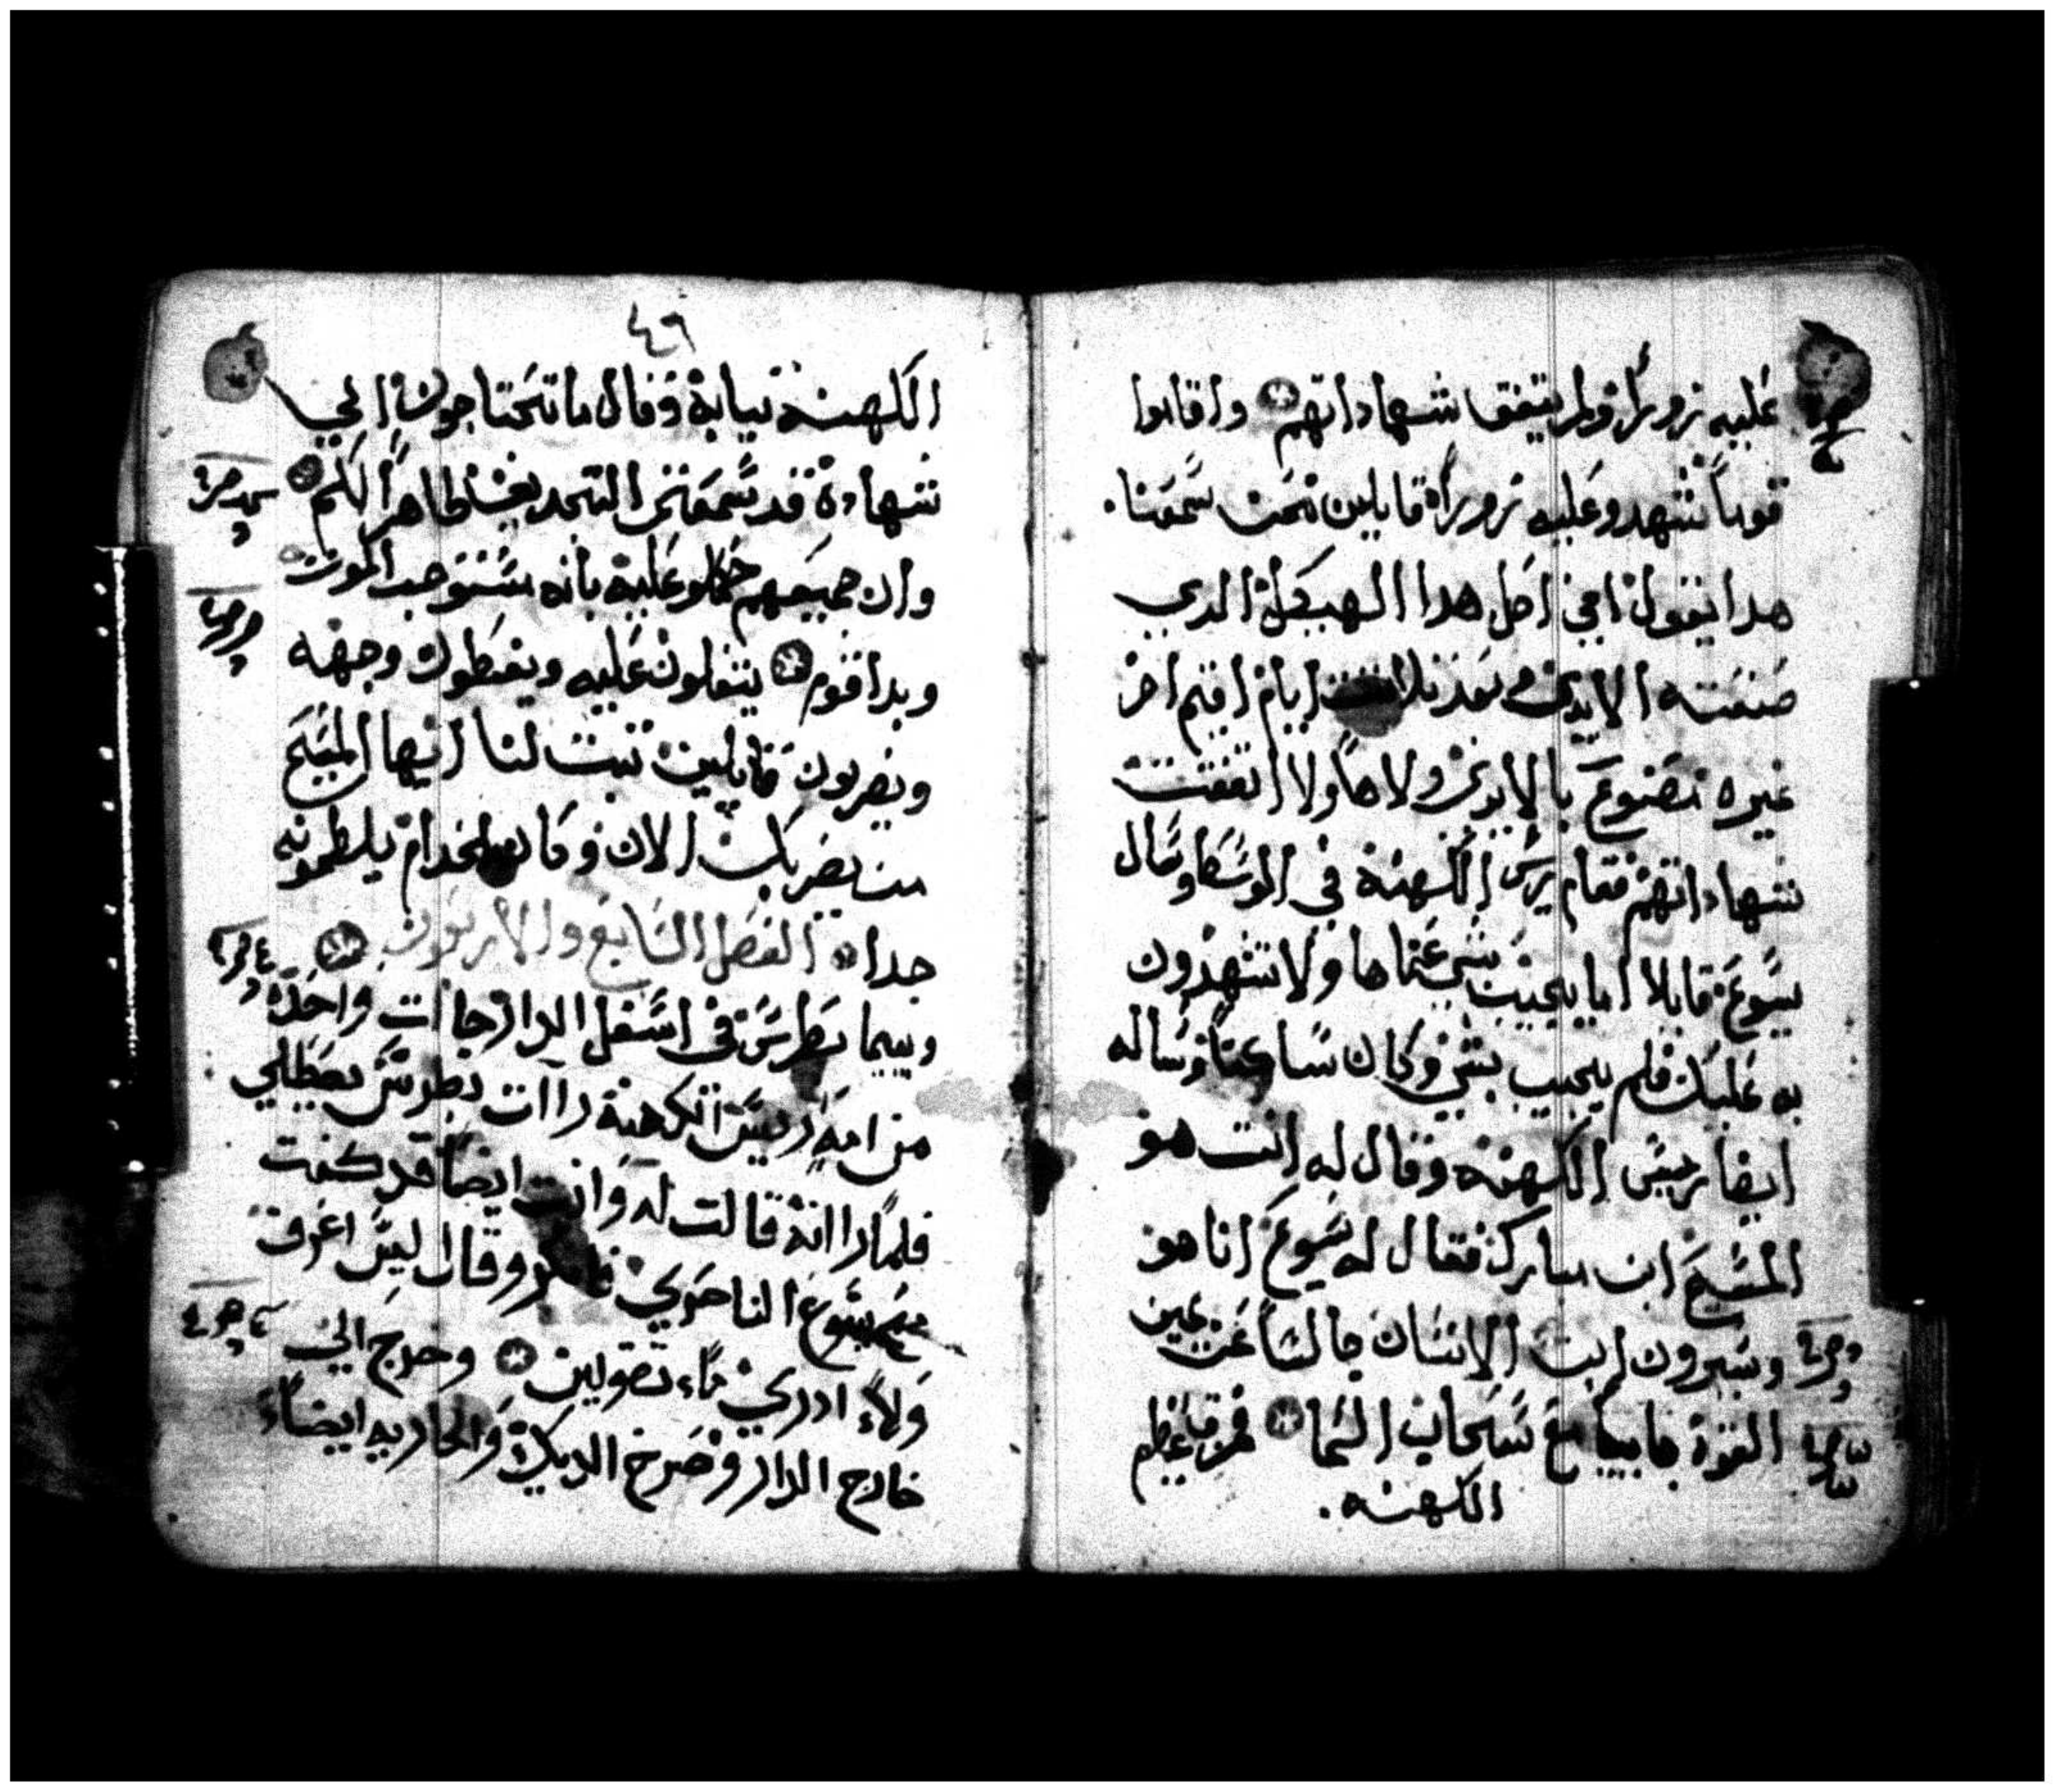 عليه زوراً ولم يتفق شهاداتهم واقاموا
قوماً شهدو عليه زوراً قايلين نحن سمعنا
هدا يقول اني احل هدا الهيكل الدي
صنعته الايدي وبعد ثلاثت ايام اقيم اخر
غيره مصنوع بالايدي ولا هاولا اتفقت
شهاداتهم فقام ريس الكهنة في الوسط وسال
يسوع قايلا اما يجيب بشي عما ها ولا تشهدون
به عليك فلم يجيب بشي وكان ساكتا وساله
ايضا رييس الكهنه وقال له انت هو
المسيح ابن مبارك فقال له يسوع انا هو
وسترون ابن الانسان جالسا عن يمين
القوة جاييا مع سحاب السما فمزق عظيم
الكهنه
٤٦
الكهنه ثيابة وقال ما تحتاجون الي
شهادة قد سمعتم التجديف ظاهراً لكم
وان جميعهم حكمو عليه بانه مستوجب الموت
وبدا قوم يتفلون عليه ويغطون وجهه
ويضربون قايلين تنبت لنا ايها المسيح
من يضربك الان وكان الخدام يلطمونه
جدا الفصل السابع والاربعون
وبينما بطرس في اسفل الدار جاات واحدة
من امه رييس الكهنة راات بطرس يصطلي
فلما راانه قالت له وانت ايضا قد كنت
مع يسوع الناصري فانكر وقال ليس اعرف
ولا ادري ماء تقولين وخرج الي
خارج الدار وصرخ الديك والجاريه ايضاً